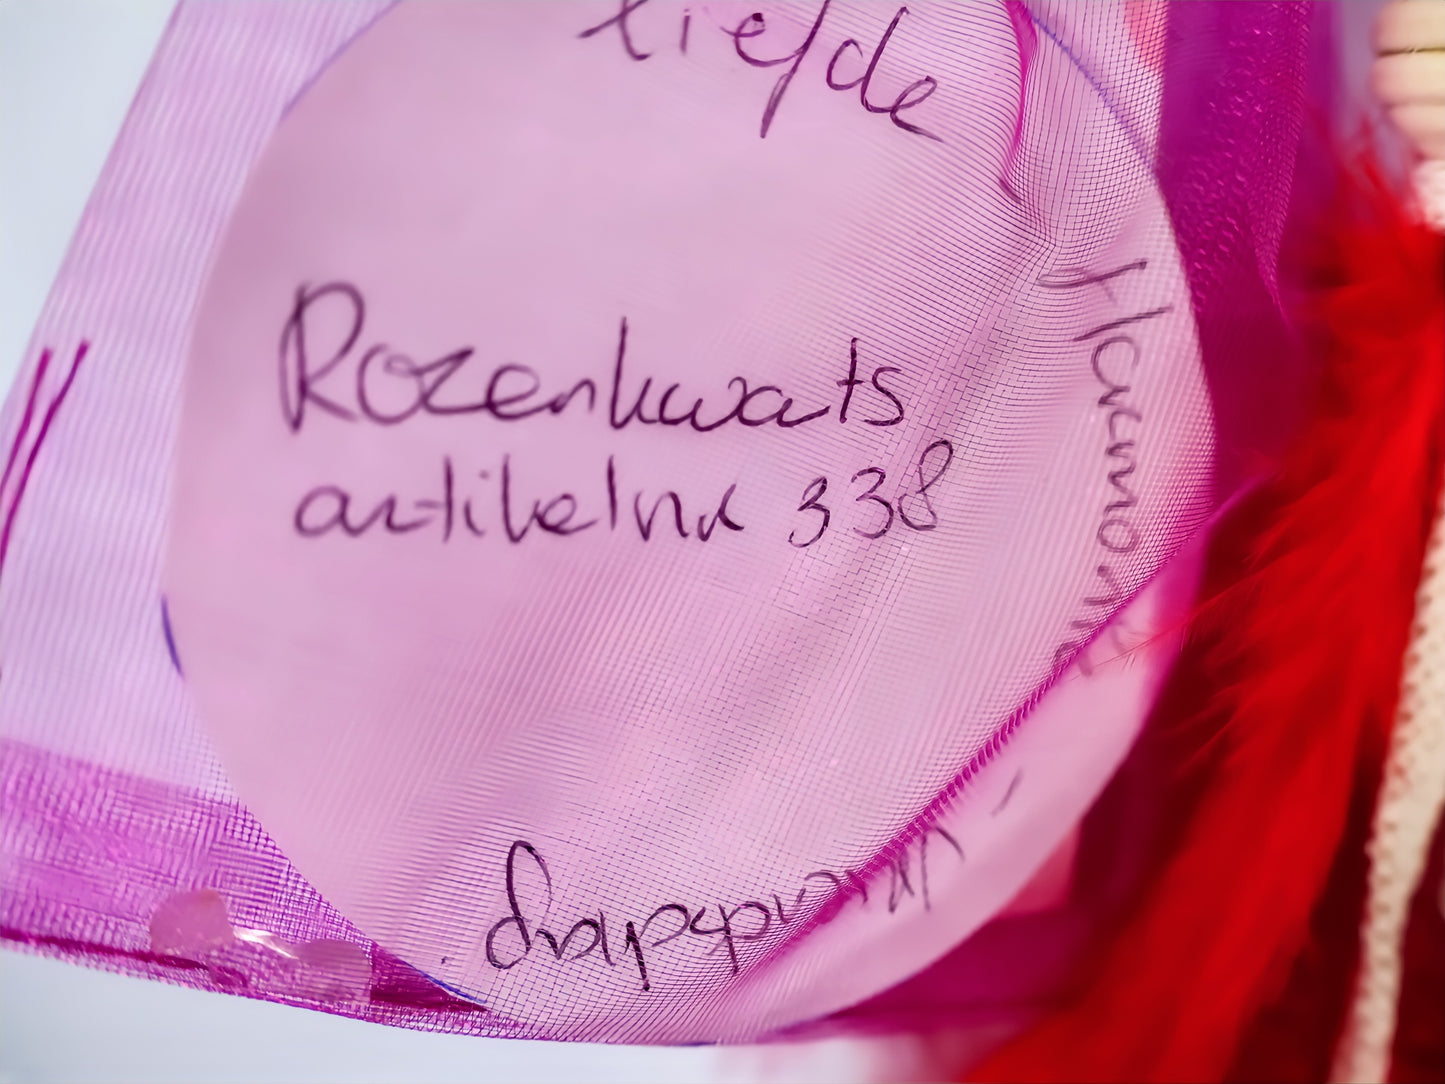 liefde
Rozenkwarts
artikelnr 338
Harmonie
Vriendschap